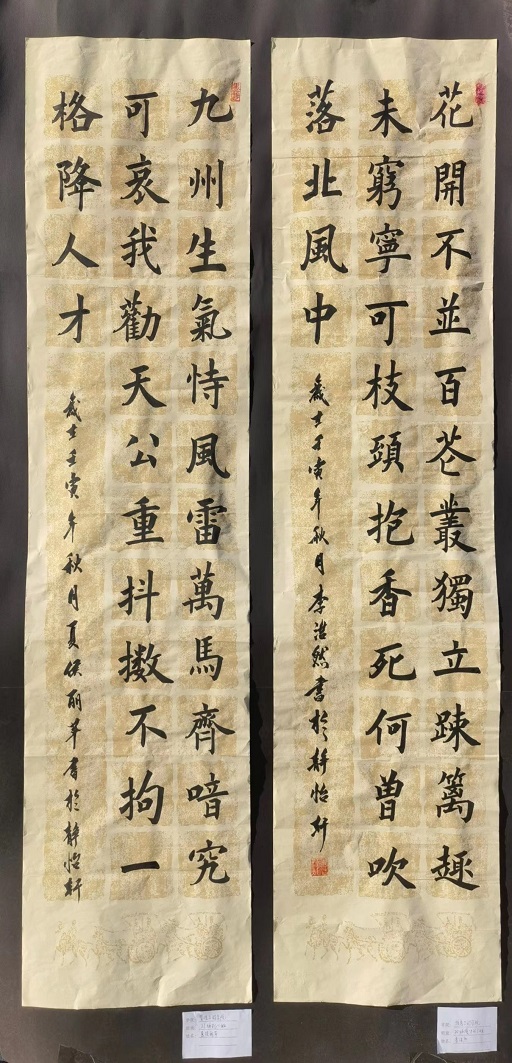 花開不並百芲叢獨立踈籬趣
未窮寧可枝頭抱香死何曾吹
落北風中
歲在壬寅年秋月李浩然書於靜怡軒
九州生氣恃風雷萬馬齊喑究
可哀我勸天公重抖擻不拘一
格降人才
歲在壬寅年秋月夏侯丽苹書於靜怡軒